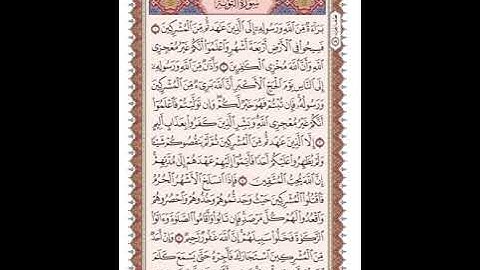 سورة التوبة
براءة من الله ورسوله إلى الذين عاهدتم من المشركين ١
فسيحوا في الأرض أربعة أشهر واعلموا أنكم غير معجزي
الله وأن الله مخزي الكافرين ٢ وأذان من الله ورسوله
إلى الناس يوم الحج الأكبر أن الله بريء من المشركين
ورسوله فإن تبتم فهو خير لكم وإن توليتم فاعلموا
أنكم غير معجزي الله وبشر الذين كفروا بعذاب أليم
٣ إلا الذين عاهدتم من المشركين ثم لم ينقصوكم شيئا
ولم يظاهروا عليكم أحدا فأتموا إليهم عهدهم إلى مدتهم
إن الله يحب المتقين ٤ فإذا انسلخ الأشهر الحرم
فاقتلوا المشركين حيث وجدتموهم وخذوهم واحصروهم
واقعدوا لهم كل مرصد فإن تابوا وأقاموا الصلوة وءاتوا
الزكوة فخلوا سبيلهم إن الله غفور رحيم ٥ وإن أحد
من المشركين استجارك فأجره حتى يسمع كلم